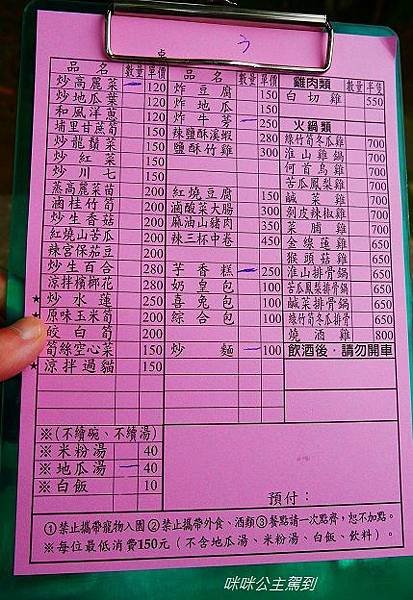 桌 5
品名 數量 單價
炒高麗菜 120
炒地瓜葉 120
和風洋蔥 120
埔里甘蔗筍 150
炒龍鬚菜 150
炒紅菜 150
炒川七 150
蒸高麗菜苗 200
滷桂竹筍 200
炒生香菇 200
紅燒山苦瓜 200
辣宮保茄豆 200
炒生百合 280
涼拌檳榔花 280
★炒水蓮 250
★原味玉米筍 200
皎白筍 200
筍絲空心菜 150
★涼拌過貓 150
品名 數量 單價
炸豆腐 150
炸地瓜 150
炸牛蒡 250
辣鹽酥溪蝦 280
鹽酥竹雞 300
紅燒豆腐 150
滷酸菜大腸 300
麻油山豬肉 350
辣三杯中卷 450
芋香糕 250
奶皇包 100
喜兔包 100
綜合包 100
炒麵 100
雞肉類 數量 半隻
白切雞 550
火鍋類
綠竹筍冬瓜雞 700
淮山雞鍋 700
何首烏雞 700
苦瓜鳳梨雞 700
鹹菜雞 700
剝皮辣椒雞 700
菜脯雞 700
金線蓮雞 650
猴頭菇雞 650
淮山排骨鍋 650
苦瓜鳳梨排骨 650
鹹菜排骨鍋 650
綠竹筍冬瓜排骨 650
燒酒雞 800
飲酒後‧請勿開車
※(不續碗、不續湯)
※米粉湯 40
※地瓜湯 40
※白飯 10
預付：
①禁止攜帶寵物入園②禁止攜帶外食、酒類③餐點請一次點齊，恕不加點。
※每位最低消費150元（不含地瓜湯、米粉湯、白飯、飲料）。
咪咪公主駕到